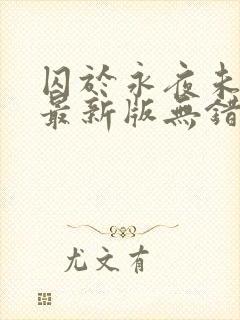 囚於永夜未
最新版無錯
尤文有